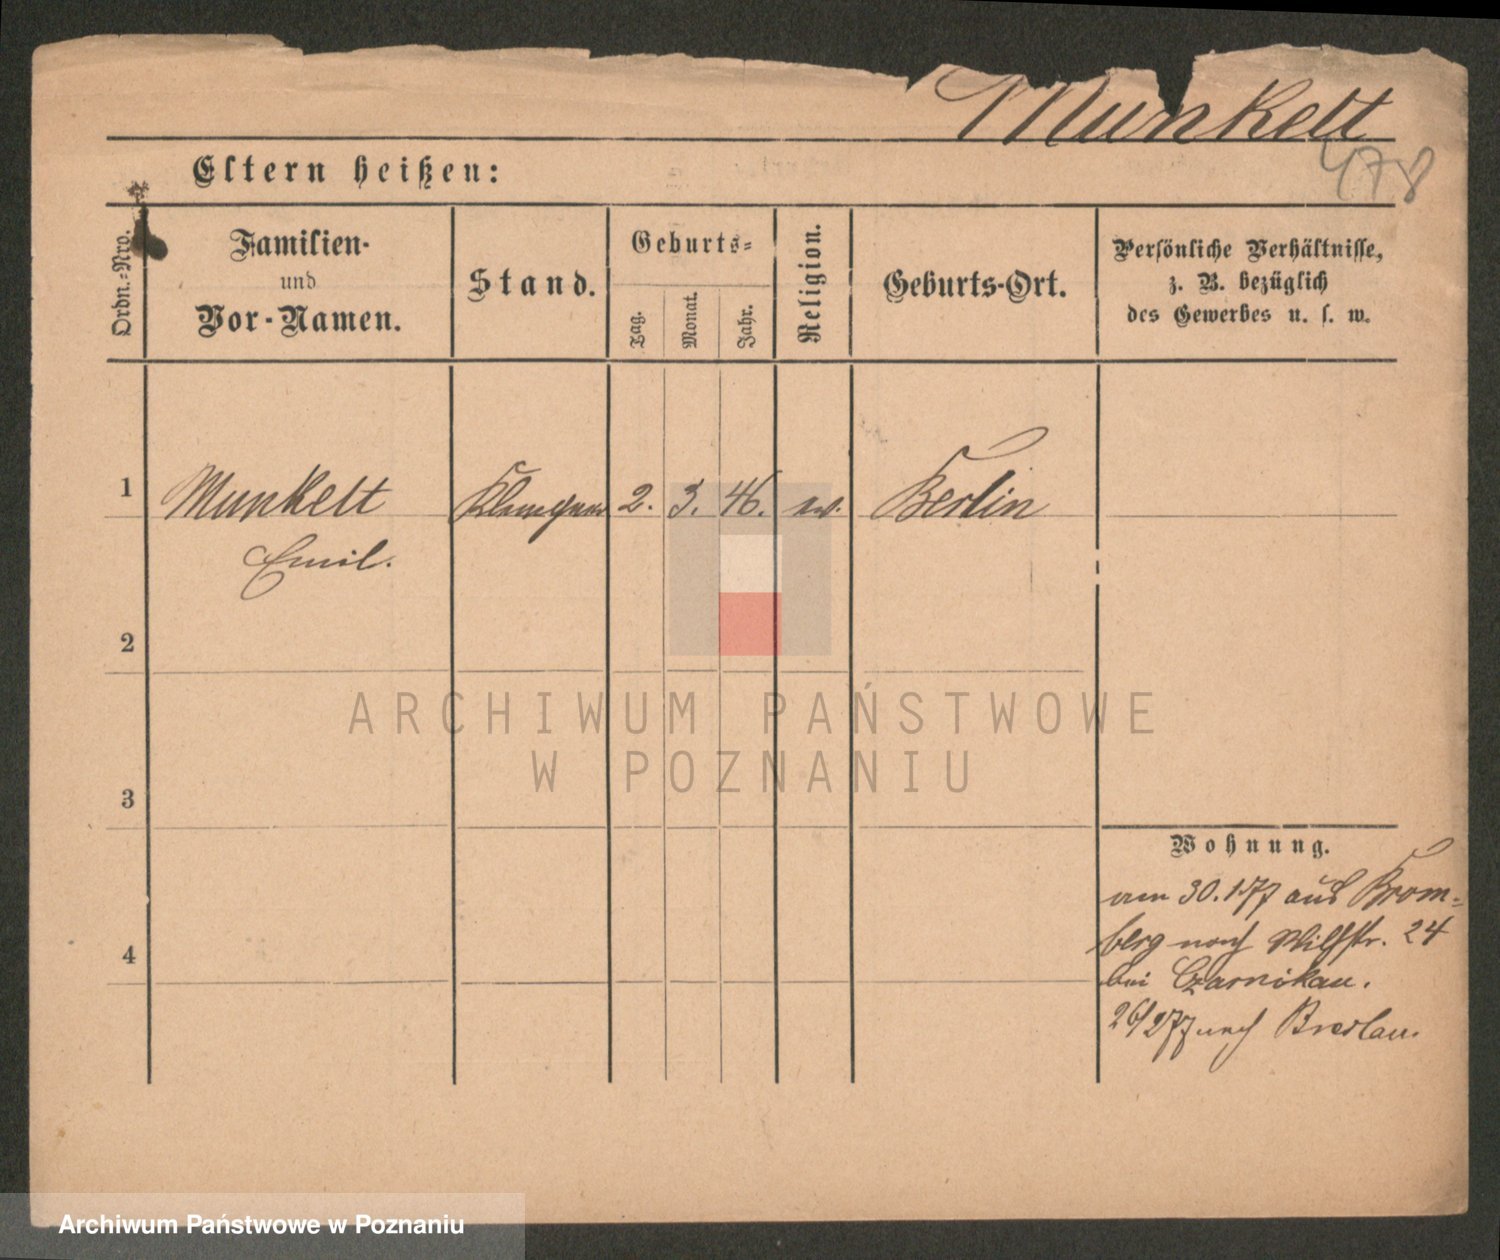 Munkelt
478
Eltern heißen:
Ordn.-Nro.
Familien-
und
Vor-Namen.
Stand.
Geburts-
Tag.
Monat.
Jahr.
Religion.
Geburts-Ort.
Persönliche Verhältnisse,
z. B. bezüglich
des Gewerbes u. s. w.
1
Munkelt
2. 3. 46. ev. Berlin
Emil.
2
3
4
Wohnung.
am 30.1.77 aus Brom-
berg nach Wilhstr. 24
bei Czarnikau.
26/2 77 nach Breslau.
ARCHIWUM PAŃSTWOWE
W POZNANIU
Archiwum Państwowe w Poznaniu